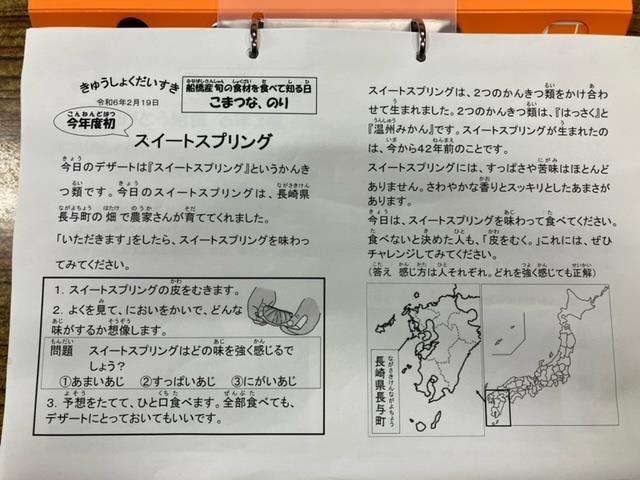 きゅうしょくだいすき
令和6年2月19日
船橋産旬の食材を食べて知る日
こまつな、のり
今年度初
スイートスプリング
今日のデザートは『スイートスプリング』というかんき
つ類です。今日のスイートスプリングは、長崎県
長与町の畑で農家さんが育ててくれました。
「いただきます」をしたら、スイートスプリングを味わっ
てみてください。
1．スイートスプリングの皮をむきます。
2．よくを見て、においをかいで、どんな
味がするか想像します。
問題　スイートスプリングはどの味を強く感じるで
しょう？
①あまいあじ　②すっぱいあじ　③にがいあじ
3．予想をたてて、ひと口食べます。全部食べても、
デザートにとっておいてもいいです。
スイートスプリングは、2つのかんきつ類をかけ合わ
せて生まれました。2つのかんきつ類は、『はっさく』と
『温州みかん』です。スイートスプリングが生まれたの
は、今から42年前のことです。
スイートスプリングには、すっぱさや苦味はほとんど
ありません。さわやかな香りとスッキリとしたあまさが
あります。
今日は、スイートスプリングを味わって食べてください。
食べないと決めた人も、「皮をむく。」これには、ぜひ
チャレンジしてみてください。
（答え　感じ方は人それぞれ。どれを強く感じても正解）
長崎県長与町